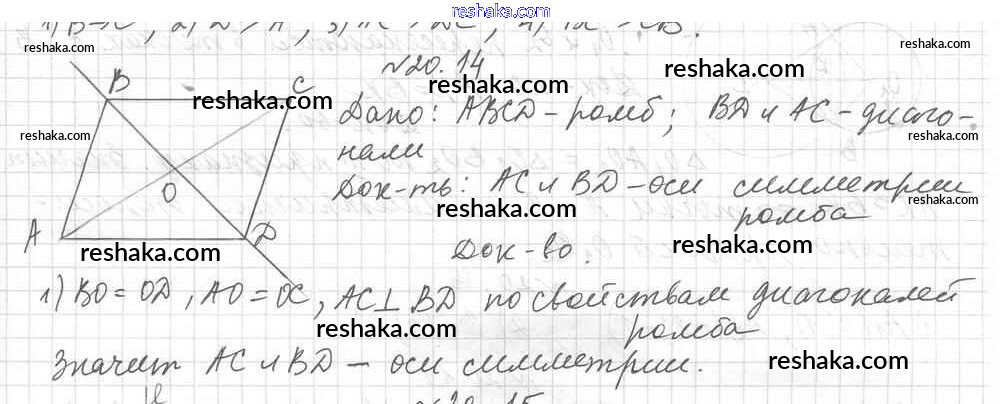 reshaka.com
1) B→C, 2) D→A, 3) AC→DC, 4) →CB.
reshaka.com
№20.14
reshaka.com
reshaka.com
B
C
Дано: ABCD-ромб; BD и AC-диаго-
reshaka.com
reshaka.com
reshaka.com
нали
reshaka.com
Док-ть: AC и BD-оси симметрии
reshaka.com
reshaka.com
O
ромба
A
D
reshaka.com
reshaka.com
Док-во.
reshaka.com
1) BO=OD, AO=OC, AC⊥BD по свойствам диагоналей
reshaka.com
ромба
Значит AC и BD - оси симметрии.
reshaka.com
№20.15